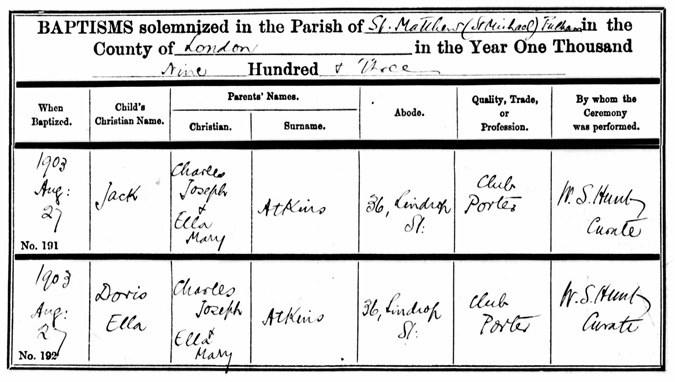 BAPTISMS solemnized in the Parish of St. Matthew (St Michael) Fulham in the
County of London in the Year One Thousand
Nine Hundred & Three
When Baptized. Child's Christian Name. Parents' Names. Abode. Quality, Trade, or Profession. By whom the Ceremony was performed.
Christian. Surname.
1903 Aug: 27 Jack Charles Joseph & Ella Mary Atkins 36, Lindrop St: Club Porter W. S. Hunt Curate
No. 191
1903 Aug: 27 Doris Ella Charles Joseph & Ella Mary Atkins 36, Lindrop St: Club Porter W. S. Hunt Curate
No. 192